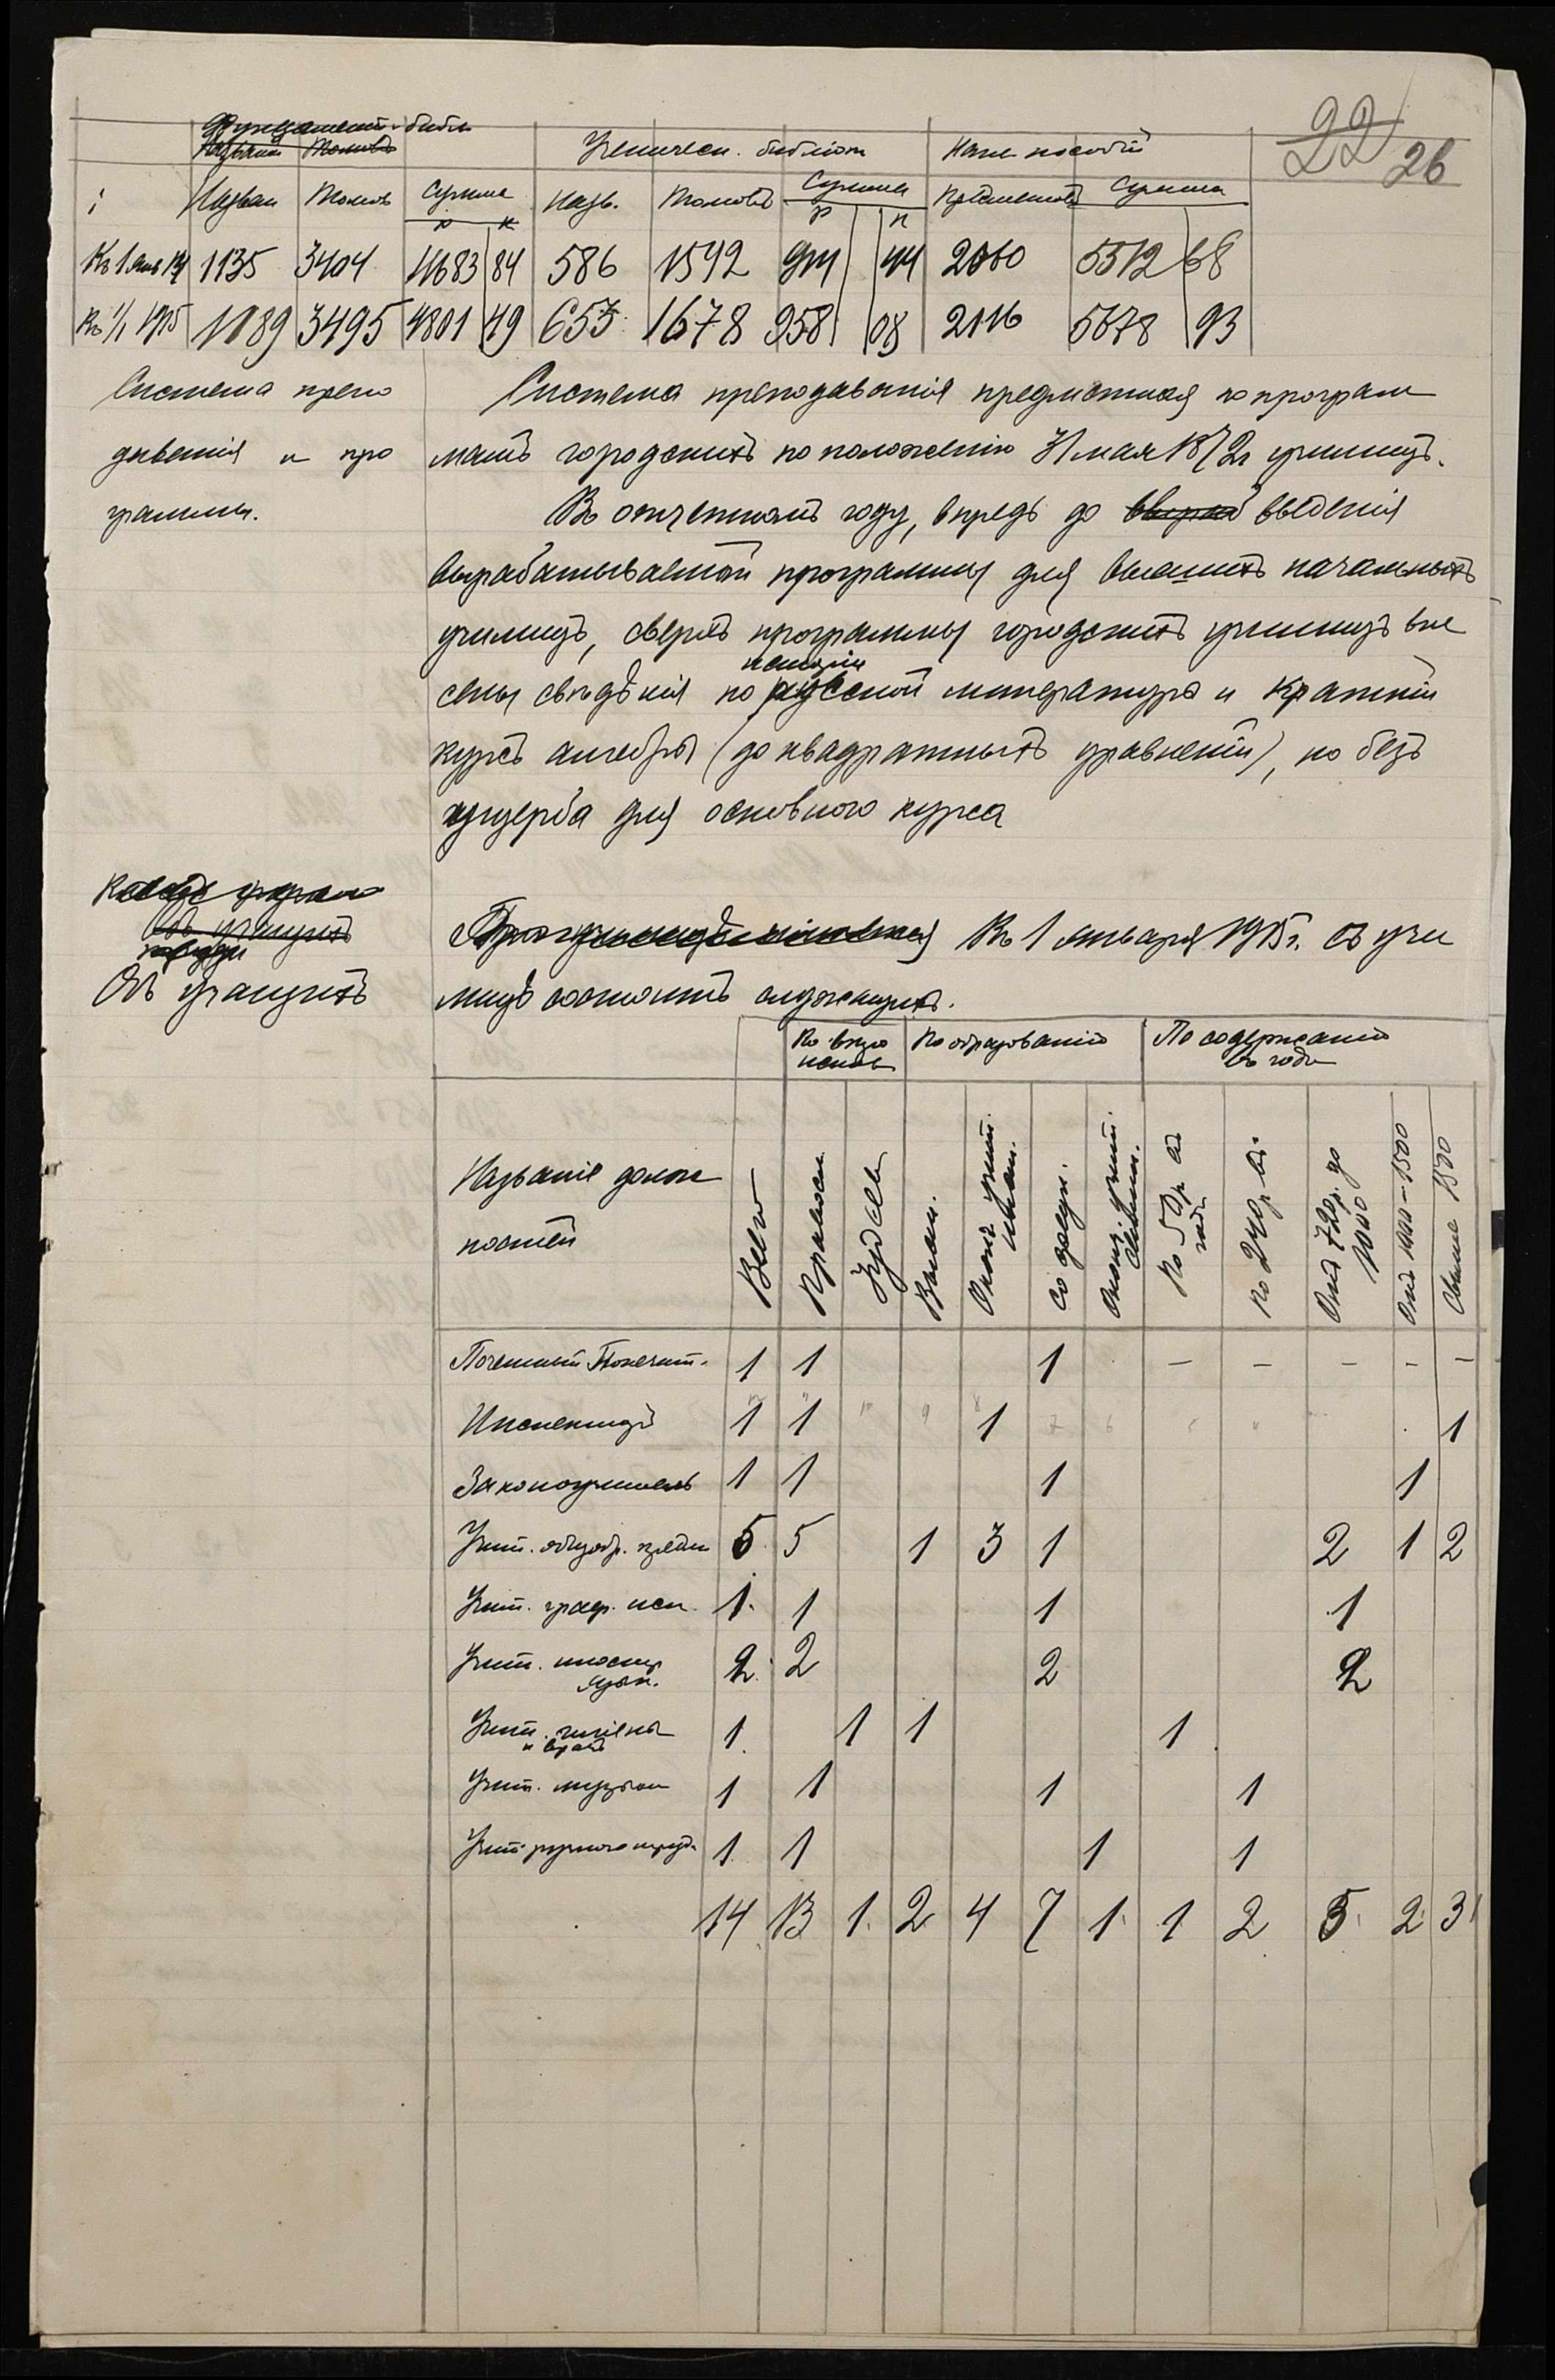 22 26
Фундамент. библ Ученическ. библіот Нагл пособій
Назван Томов Сумма Назв. Томовъ Сумма Предметовъ Сумма
р к р к
Къ 1 янв 14 1135 3404 4683 84 586 1592 911 44 2060 5512 68
Къ 1/1 1915 1189 3495 4801 49 653 1678 958 08 2116 5678 93
Система препо
даванія и про
граммы.
Система преподаванія предметная по програм
мамъ городскихъ по положенію 31 мая 1872 г училищъ.
Въ отчетномъ году, впредь до введенія
вырабатываемой программы для высшихъ начальныхъ
училищъ, сверхъ программы городскихъ училищъ вне
сены свѣдѣнія по исторіи русской литературы и краткій
курсъ алгебры (до квадратныхъ уравненій), но безъ
ущерба для основного курса
Объ учащихъ
Къ 1 января 1915 г. въ учи
лищѣ состоитъ служащихъ.
По вѣро исповѣ По образованію По содержанію въ годъ
Названіе долж
ностей
Всего Православ. Іудей Высш. Оконч. учит. инст. Со средн. Оконч. учит. семин. По 50 р въ годъ По 240 р въ Отъ 720 р. до 1000 Отъ 1000-1500 Свыше 1500
Почетный Попечит. 1 1 1 – – – – –
Инспекторъ 1 1 1 1
Законоучитель 1 1 1 1
Учит. общеобр. предм 5 5 1 3 1 2 1 2
Учит. граф. иск. 1 1 1 1
Учит. иностр. 2 2 2 2
язык.
Учит. гигіены 1 1 1 1
и врачъ
Учит. музыки 1 1 1 1
Учит. ручного труда 1 1 1 1
14 13 1 2 4 7 1 1 2 5 2 3